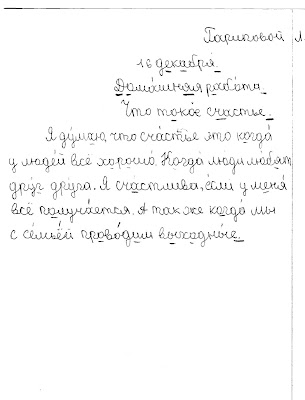 Гариповой Л.
16 декабря.
Домашняя работа.
Что токое счастье.
Я думаю, что счастье это когда
у людей всё хорошо. Когда люди любят
друг друга. Я счастлива, если у меня
всё получается. А так же когда мы
с семьёй проводим выхадные.